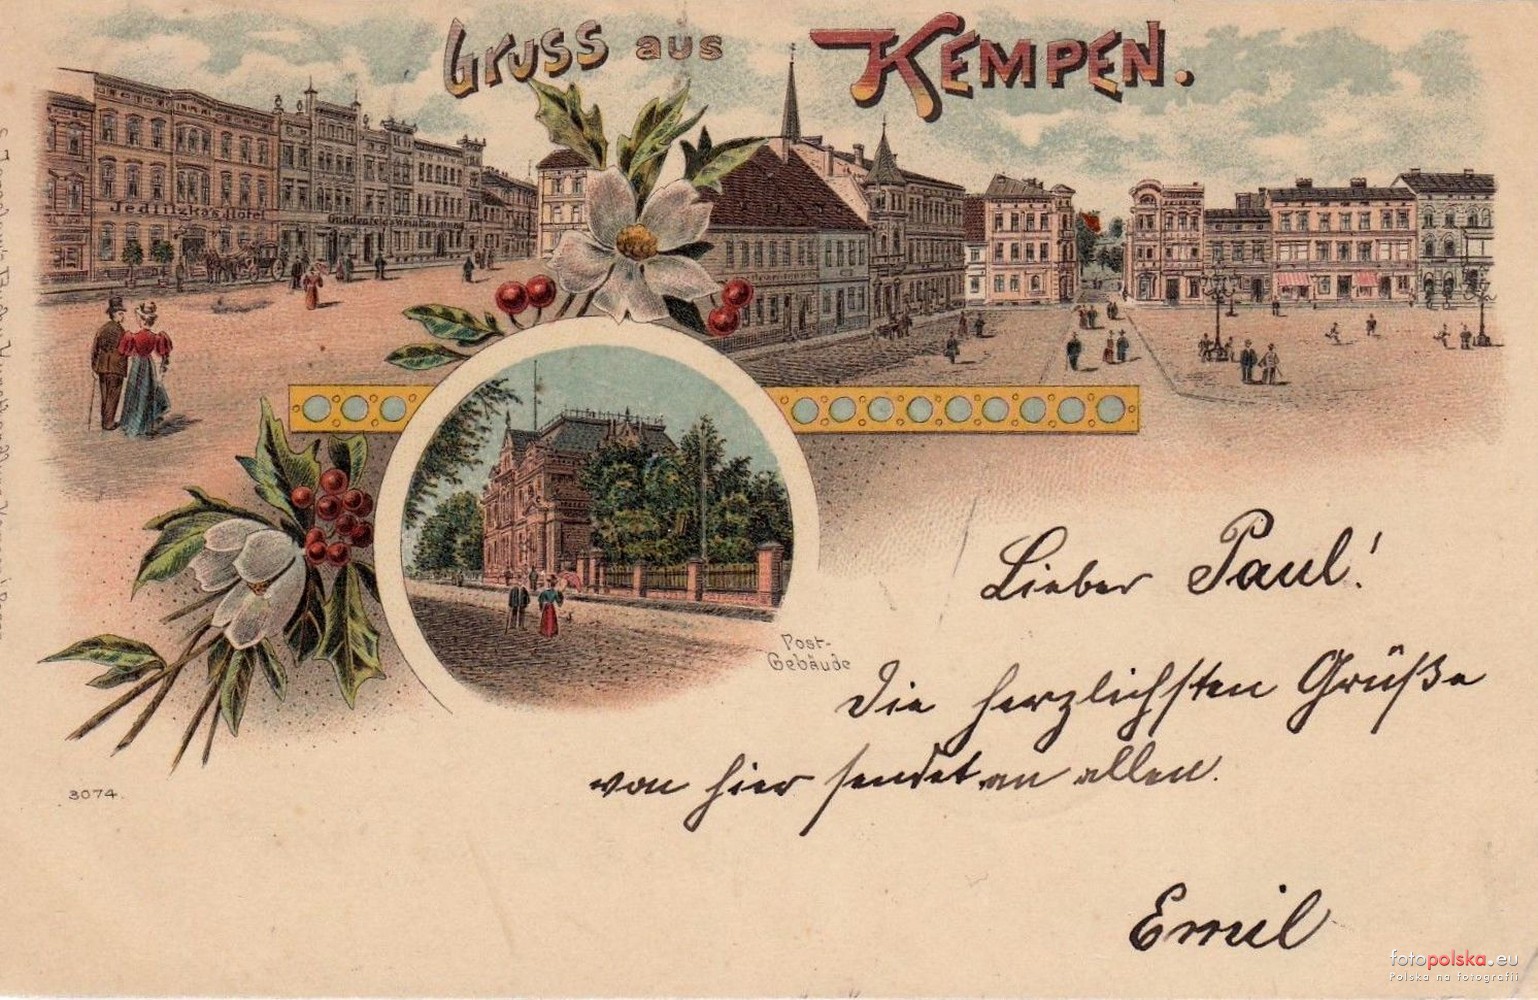 Gruss aus KEMPEN.
Jedlitzka's Hotel
Post-
Gebäude
Lieber Paul!
Die herzlichsten Grüße
von hier sendet an allen.
Emil
3074.
fotopolska.eu
Polska na fotografii